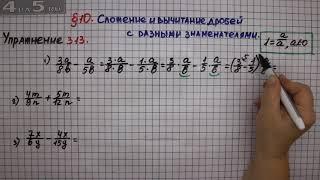 4 из 5
§10. Сложение и вычитание дробей
с разными знаменателями.
1 = a/a, a≠0
Упражнение 313.
1) 3a/8b - a/5b = 3·a/8·b - 1·a/5·b = 3/8 · a/b - 1/5 · a/b = (3/8 - 1/5)
2) 4m/8n + 5m/12n
3) 7x/6y - 4x/15y